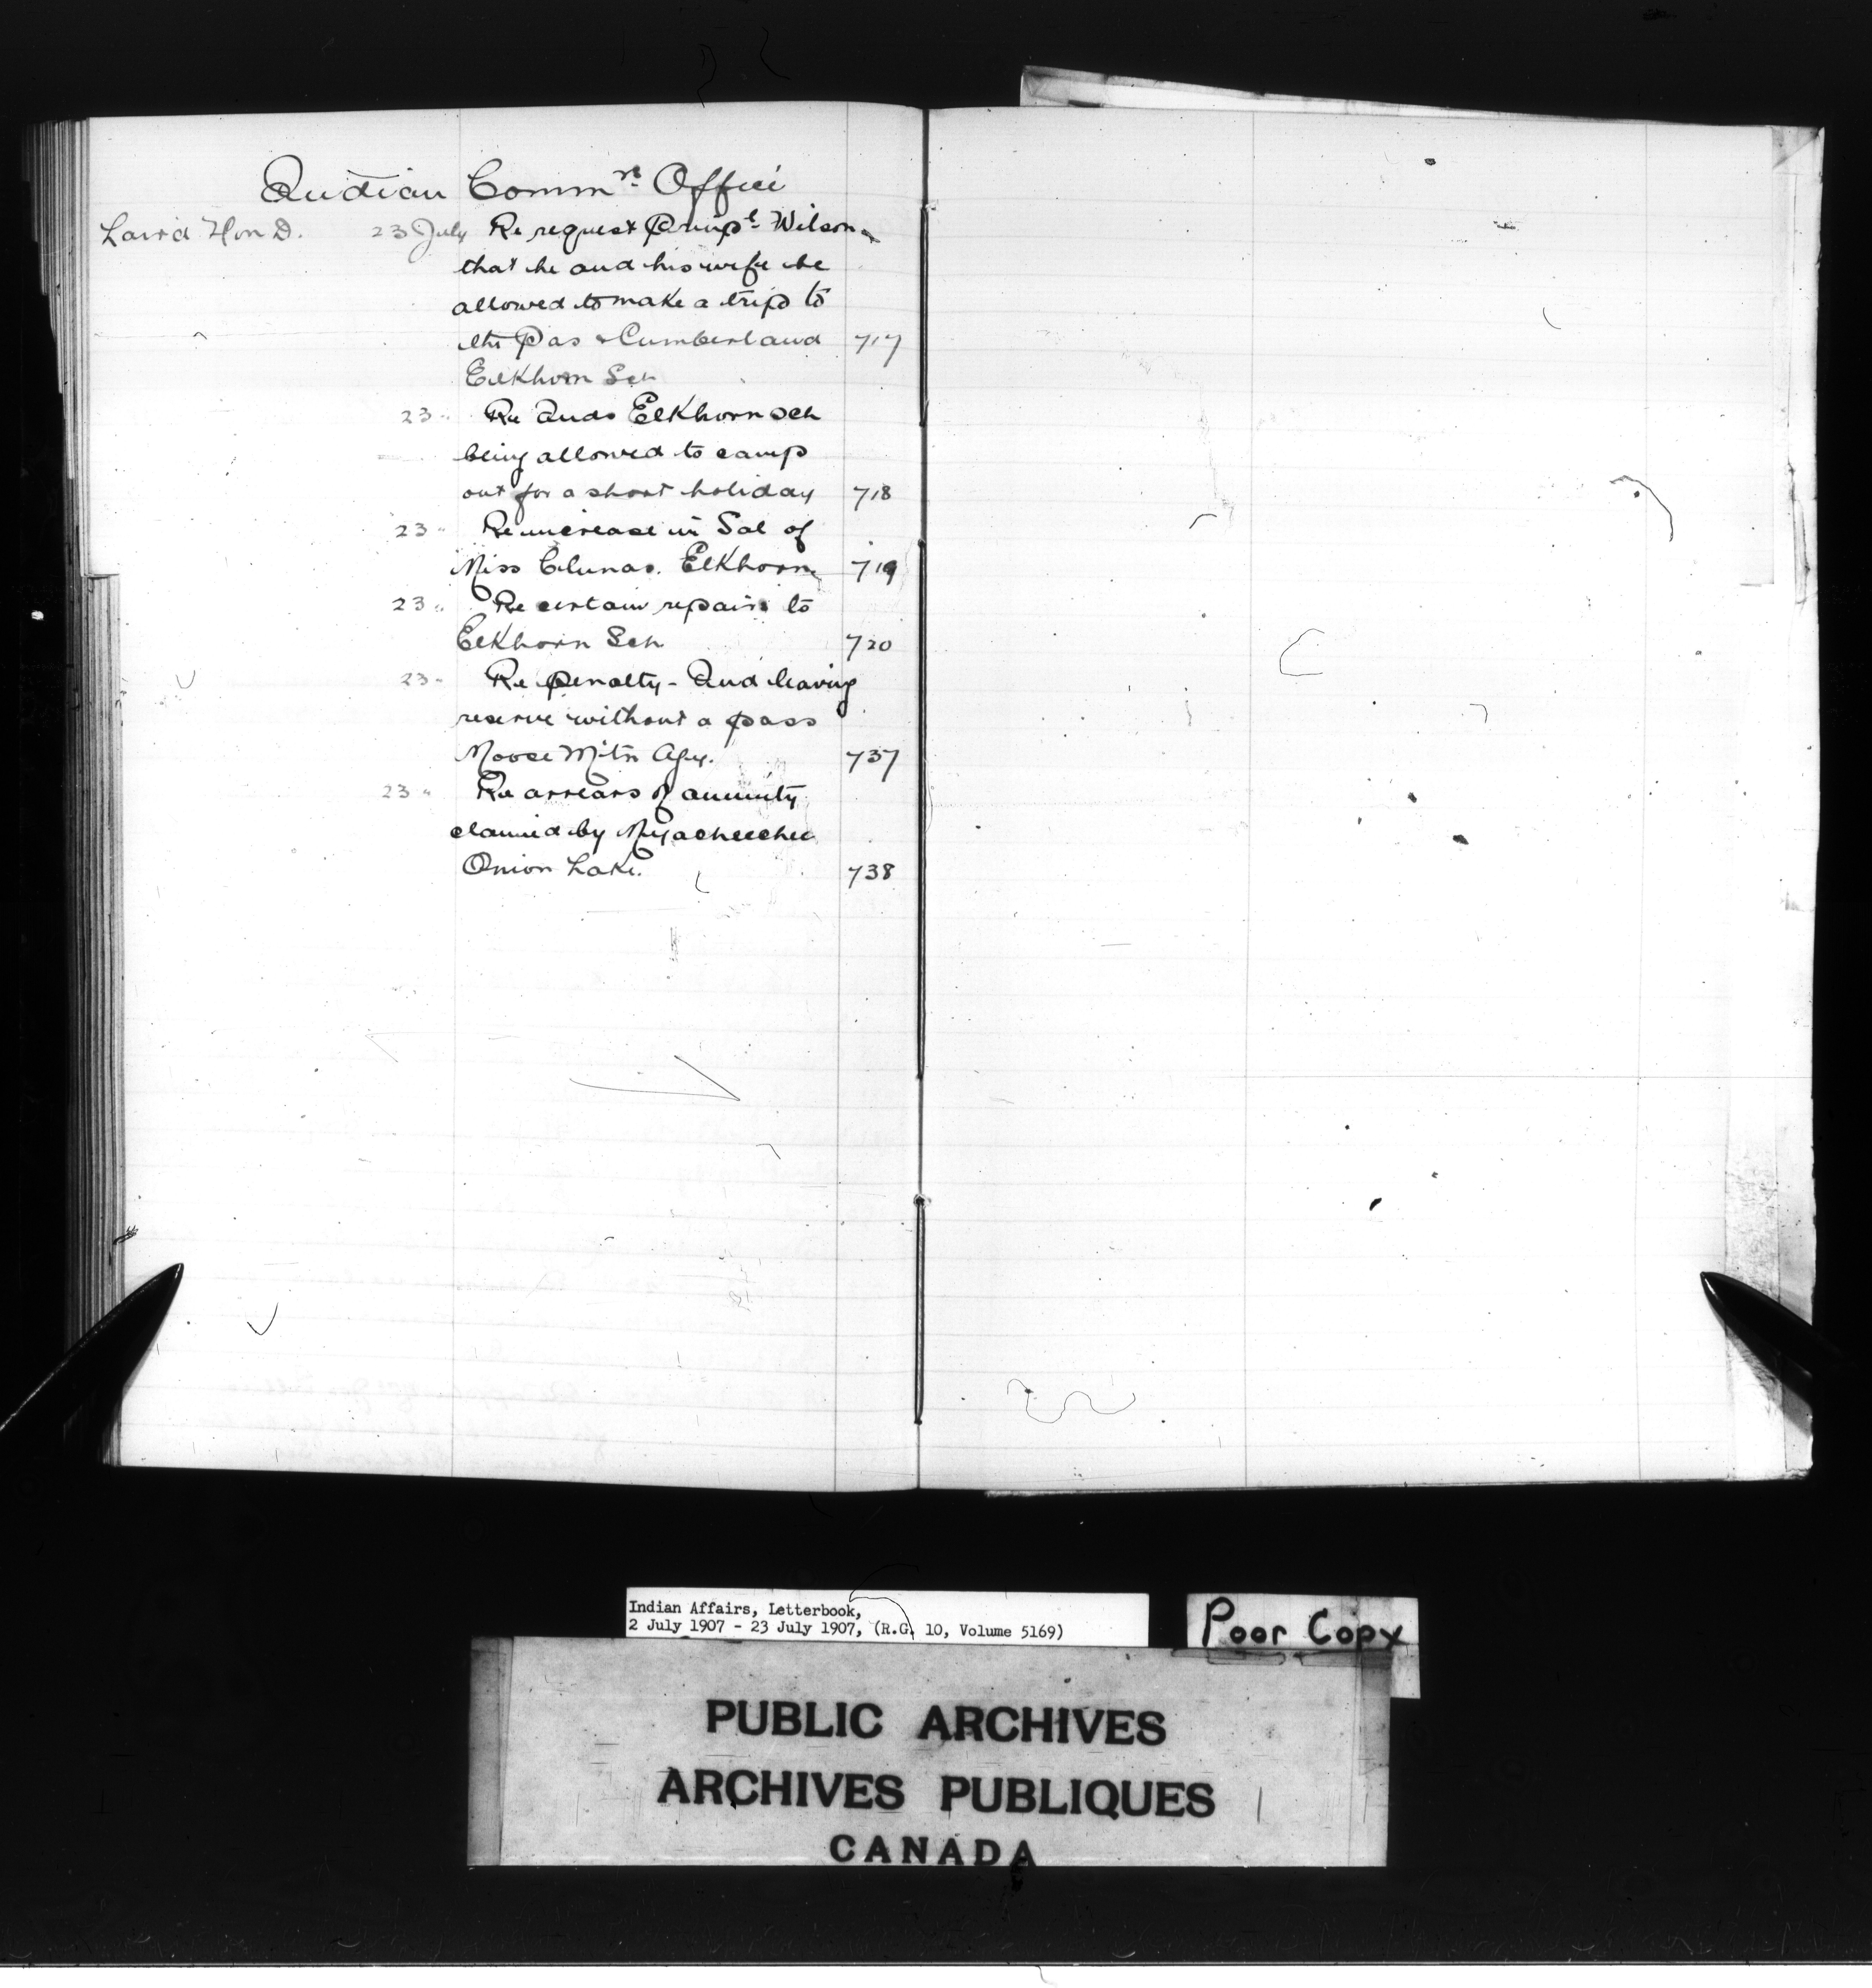 Indian Commrs Office
Laird Hon D. 23 July Re request Princpl Wilson
that he and his wife be
allowed to make a trip to
the Pas & Cumberland 717
Elkhorn Sch
23 " Re Inds Elkhorn Sch
being allowed to camp
out for a short holiday 718
23 " Re increase in Sal of
Miss Clunas. Elkhorn 719
23 " Re certain repairs to
Elkhorn Sch 720
23 " Re Penalty - Ind leaving
reserve without a pass
Moose Mtn Agy. 737
23 " Re arrears of annuity
claimed by
Onion Lake. 738
Indian Affairs, Letterbook,
2 July 1907 - 23 July 1907, (R.G. 10, Volume 5169)
Poor Copy
PUBLIC ARCHIVES
ARCHIVES PUBLIQUES
CANADA